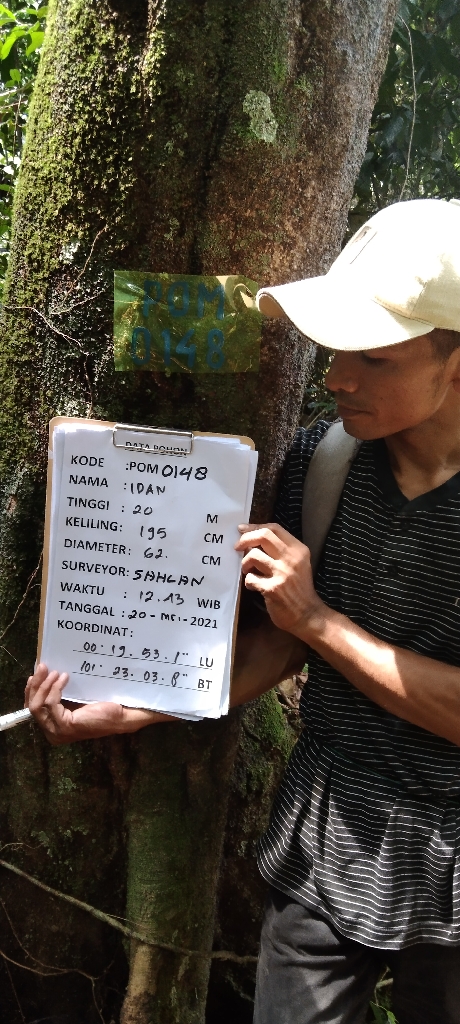 POM
0148
DATA POHON
KODE :POM 0148
NAMA : IDAN
TINGGI : 20 M
KELILING: 195 CM
DIAMETER: 62. CM
SURVEYOR: SAHLAN
WAKTU : 12.13 WIB
TANGGAL : 20 - MEI - 2021
KOORDINAT:
00° 19. 53. 1" LU
101° 23. 03. 8" BT